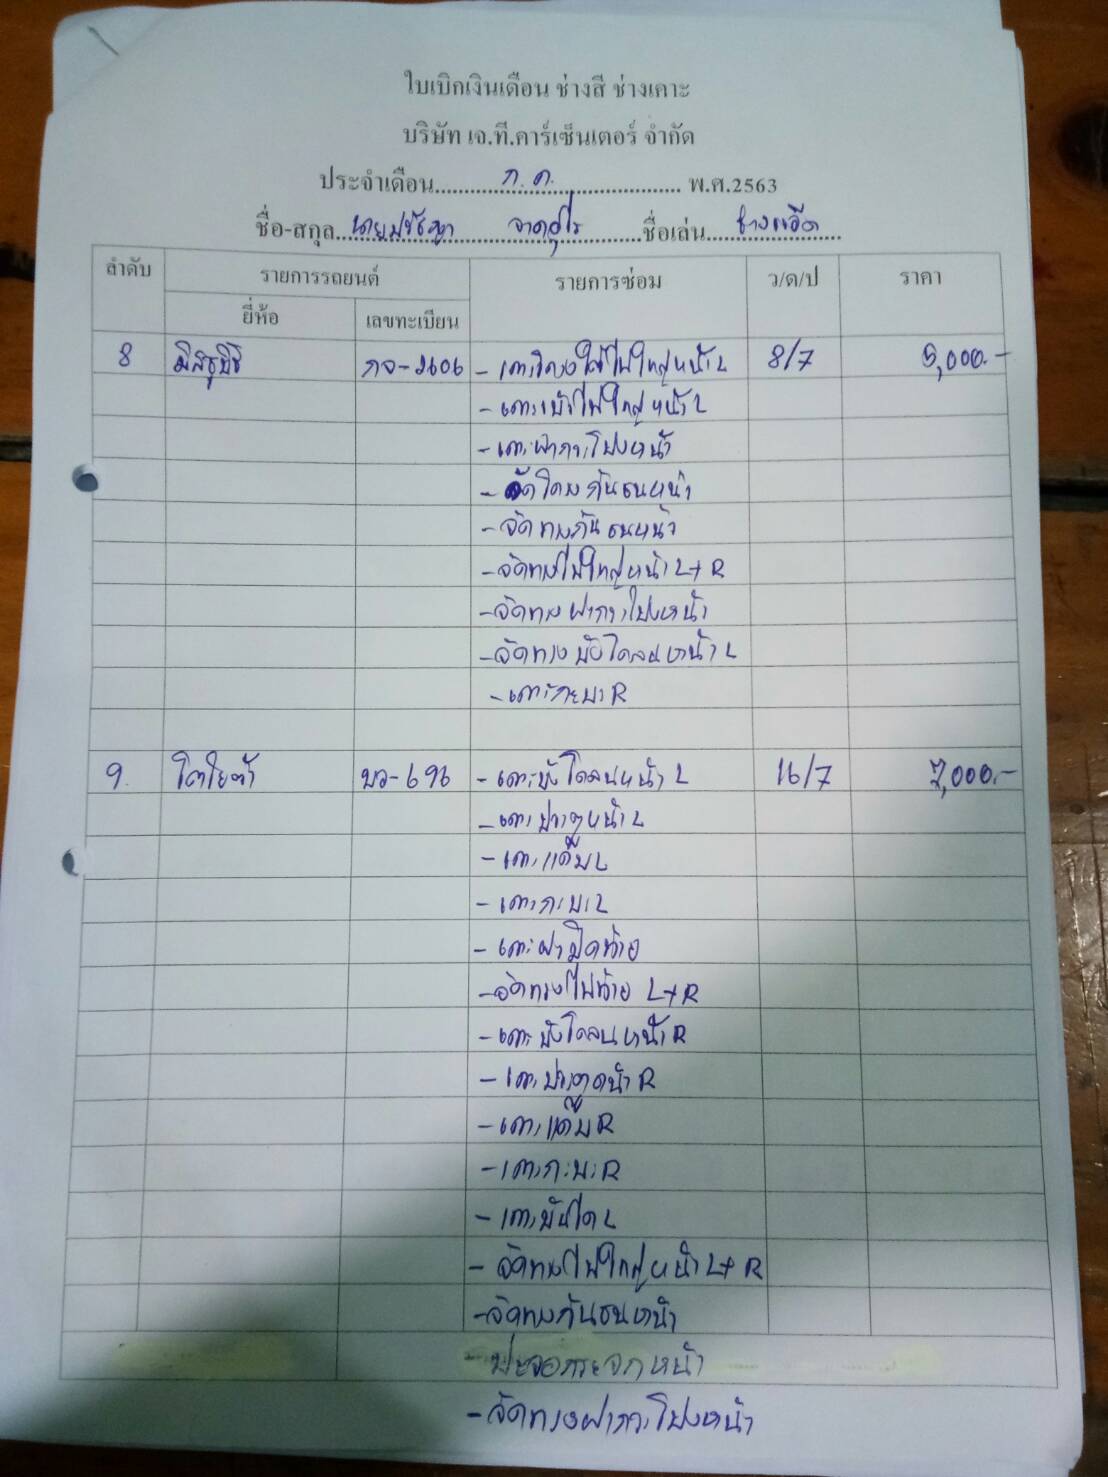 ใบเบิกเงินเดือน ช่างสี ช่างเคาะ
บริษัท เจ.ที.คาร์เซ็นเตอร์ จำกัด
ประจำเดือน......ก.ค.......พ.ศ.2563
ชื่อ-สกุล...นายปรัชญา.......ชื่อเล่น...ช่างแอ๊ด...
ลำดับ รายการรถยนต์ รายการซ่อม ว/ด/ป ราคา
ยี่ห้อ เลขทะเบียน
8 มิสซูบิชิ กจ-2606 - เคาะโครงใส้ไฟใหญ่หน้า L 8/7 5,000.-
- เคาะเบ้าไฟใหญ่หน้า L
- เคาะฝากระโปงหน้า
- จัดโครงกันชนหน้า
- จัดทรงกันชนหน้า
- จัดทรงไฟใหญ่หน้า L+R
- จัดทรงฝากระโปงหน้า
- จัดทรงบังโคลนหน้า L
- เคาะกะบะ R
9. โตโยต้า บว-696 - เคาะบังโคลนหน้า L 16/7 7,000.-
- เคาะประตูหน้า L
- เคาะแค๊บ L
- เคาะกะบะ L
- เคาะฝาปิดท้าย
- จัดทรงไฟท้าย L+R
- เคาะบังโคลนหน้า R
- เคาะประตูหน้า R
- เคาะแค๊บ R
- เคาะกะบะ R
- เคาะบันได L
- จัดทรงไฟใหญ่หน้า L+R
- จัดทรงกันชนหน้า
- ปะจอกระจกหน้า
- จัดทรงฝากระโปงหน้า